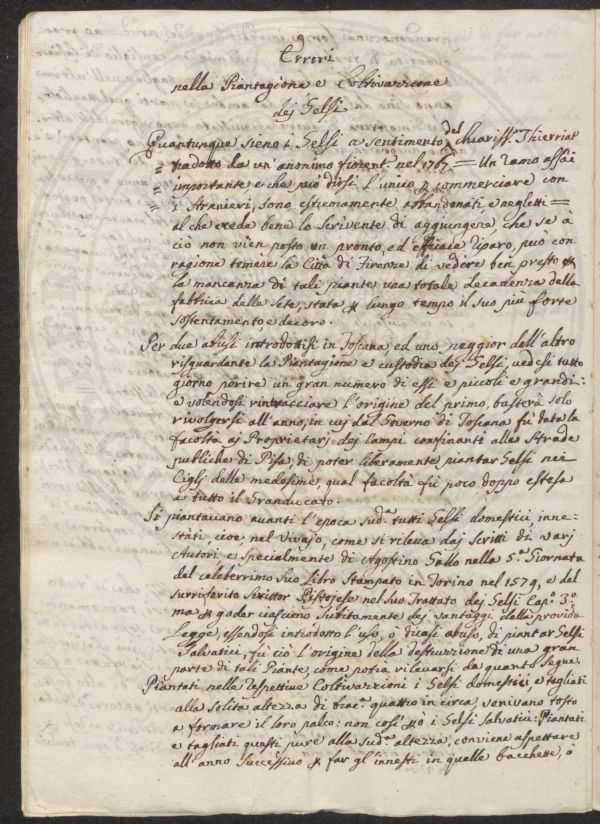 Errori
nella Piantagione e Coltivazione
dej Gelsi
Quantunque sieno i Gelsi a sentimento del Chiariss. Thierriat
= tradotto da un' anonimo fiorent. nel 1767 = Un ramo assai
= importante, e che può dirsi l'unico p commerciare con
= i Stranieri, sono estremamente abbandonati, e negletti =
al che crede bene lo scrivente di aggiungere, che se à
ciò non vien posto un pronto, ed efficace riparo, può con
ragione temere la Città di Firenze di vedere ben presto p
la mancanza di tali piante una totale decadenza della
fabbrica delle Sete, stata p lungo tempo il suo più forte
sostentamento e decoro.
Per due abusi introdottisi in Toscana, ed uno peggior dell'altro
risguardante la Piantagione e custodia dej Gelsi, vedesi tutto
giorno perire un gran numero di essi e piccoli e grandi:
e volendosi rintracciare l'origine del primo, basterà solo
rivolgersi all'anno, in cuj dal Governo di Toscana fù data la
facoltà aj Proprietarj dej campi confinanti alle Strade
publiche di Pisa, di poter liberamente piantar Gelsi nei
Ciglj delle medesime, qual facoltà fù poco doppo estesa
a tutto il Granducato.
Si piantavano avanti l'epoca sud.ª tutti Gelsi domestici inne=
stati, cioè, nel Vivajo, come si rileva daj Scritti di varj
Autori e specialmente di Agostino Gallo nella 5.ª Giornata
del celeberrimo suo Libro stampato in Torino nel 1579, e del
surriferito Scrittor Pistojese nel suo Trattato dej Gelsi Cap.º 3.º
ma p goder ciascuno subitamente dej vantaggi della provida
Legge, essendosi introdotto l'uso, ò dicasi abuso, di piantar Gelsi
Salvatici, fù ciò l'origine della destruzzione di una gran
parte di tali Piante, come potrà rilevarsi da quanto segue.
Piantati nelle respettive Coltivazzioni i Gelsi domestici, e tagliati
alla solita altezza di brac. quattro in circa, venivano tosto
a formare il loro palco: non così p ò i Gelsi Salvatici: Piantati
e tagliati questi pure alla sud.ª altezza, conviene aspettare
all'anno successivo p far gl'innesti in quelle bacchette, ò